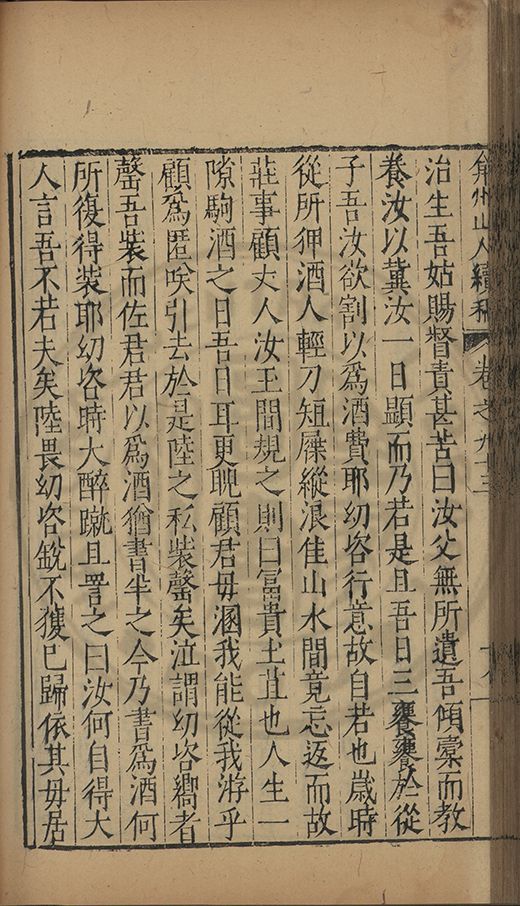 弇州山人續稿 卷之九十三
治生吾姑賜督責甚苦曰汝父無所遺吾傾橐而教
養汝以冀汝一日顯而乃若是且吾日三饔饔於從
子吾汝欲割以爲酒費耶幼咨行意故自若也歲時
從所狎酒人輕刀短屧縱浪佳山水間竟忘返而故
莊事顧丈人汝玉間規之則曰富貴土苴也人生一
隙駒酒之日吾日耳更睨顧君毋溷我能從我游乎
顧爲匿唉引去於是陸之私裝罄矣泣謂幼咨嚮者
罄吾裝而佐君君以爲酒猶書半之今乃書爲酒何
所復得裝耶幼咨時大醉蹴且詈之曰汝何自得大
人言吾不若夫矣陸畏幼咨銳不獲已歸依其毋居